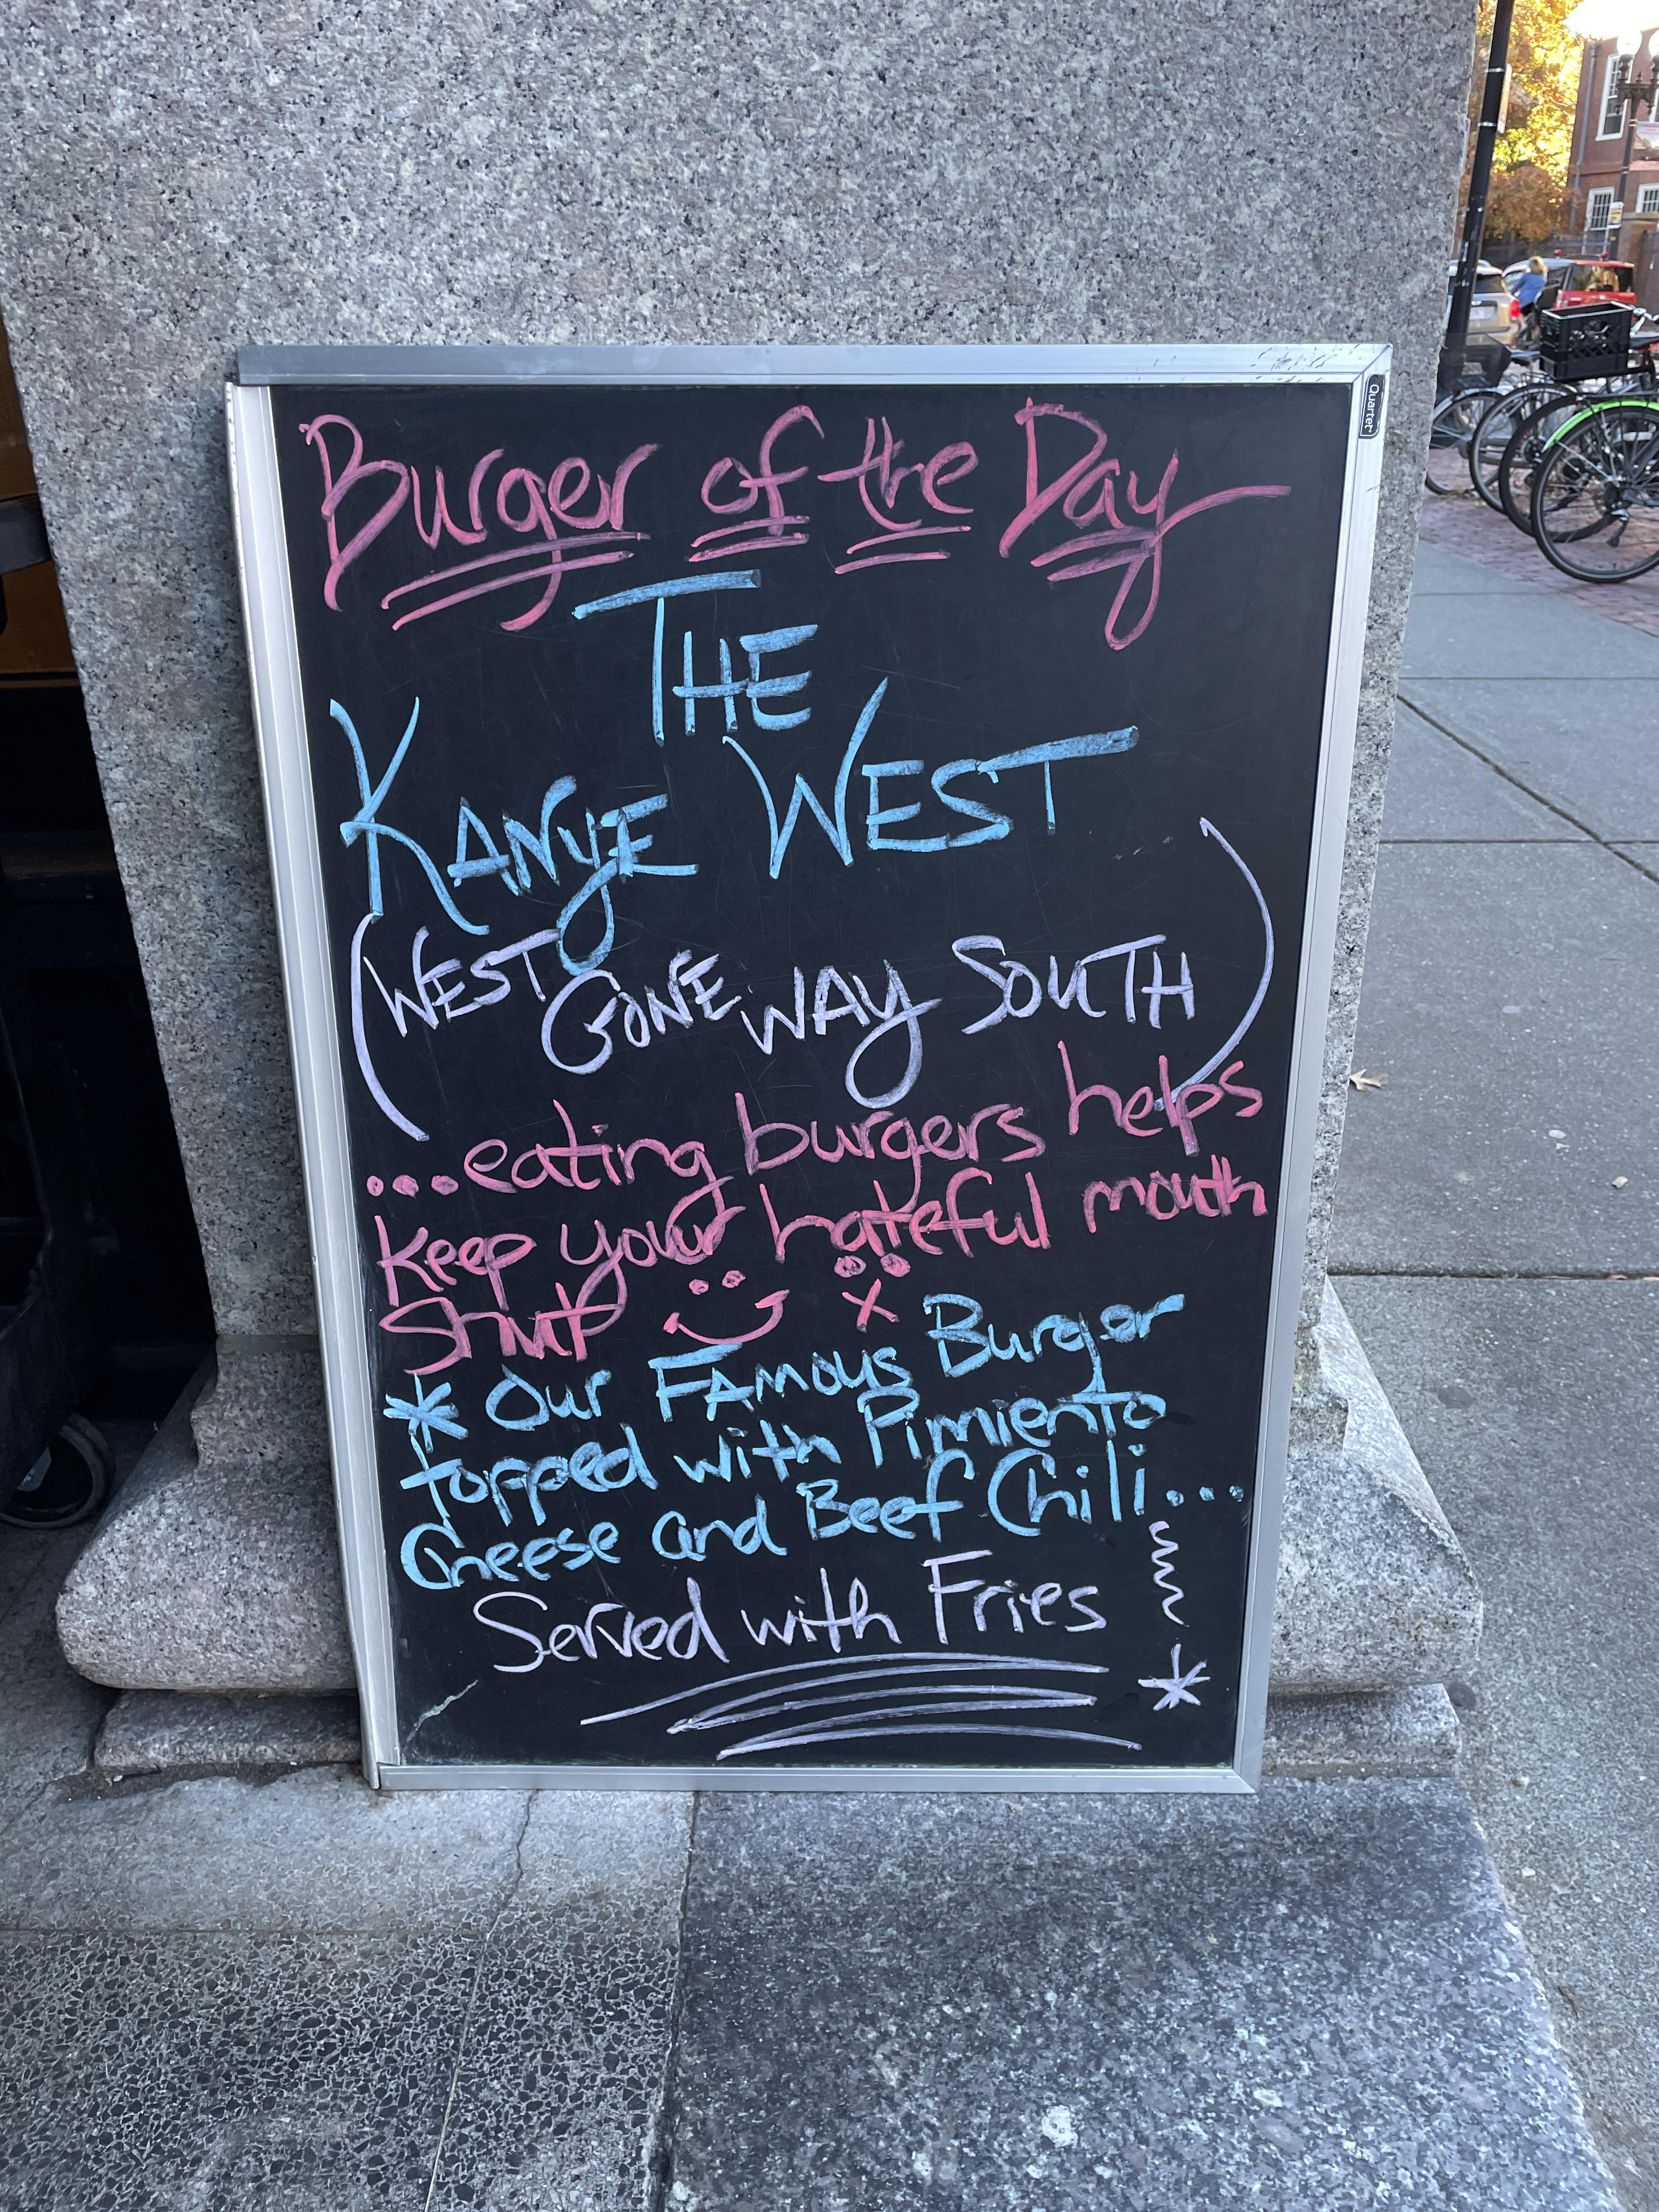 Quartet
Burger of the Day
THE
KANYE WEST
(WEST GONE WAY SOUTH)
...eating burgers helps
keep your hateful mouth
shut
* Our Famous Burger
topped with Pimiento
Cheese and Beef Chili...
Served with Fries
*